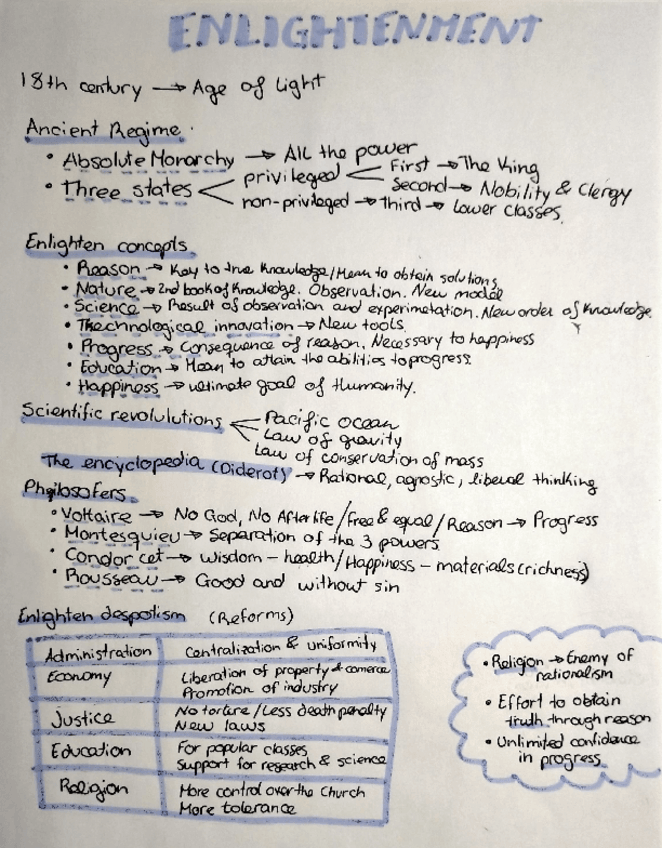 ENLIGHTENMENT
18th century → Age of Light
Ancient Regime.
• Absolute Monarchy → All the power
• Three states < privileged < First → The King
Second → Nobility & Clergy
non-privileged → third → Lower classes.
Enlighten concepts.
• Reason → Key to true knowledge/Mean to obtain solutions
• Nature → 2nd book of knowledge. Observation. New model
• Science → Result of observation and experimetation. New order of knowledge.
• Thecnological innovation → New tools.
• Progress → Consequence of reason. Necessary to happiness
• Education → Mean to attain the abilities to progress.
• Happiness → ultimate goal of Humanity.
Scientific revolulutions < Pacific Ocean
Law of gravity
Law of conservation of mass
The encyclopedia (Diderot) → Rational, agnostic, liberal thinking
Philosofers.
• Voltaire → No God, No Afterlife / Free & equal / Reason → Progress
• Montesquieu → Separation of the 3 powers.
• Condor cet → Wisdom – health / Happiness – materials (richness)
• Rousseau → Good and without sin
Enlighten despotism (Reforms)
Administration Centralization & uniformity
Economy Liberation of property & comerce
Promotion of industry
Justice No torture / Less death penalty
New laws
Education For popular classes
Support for research & science
Religion More control over the Church
More tolerance
• Religion → Enemy of
rationalism
• Effort to obtain
truth through reason
• Unlimited confidence
in progress.